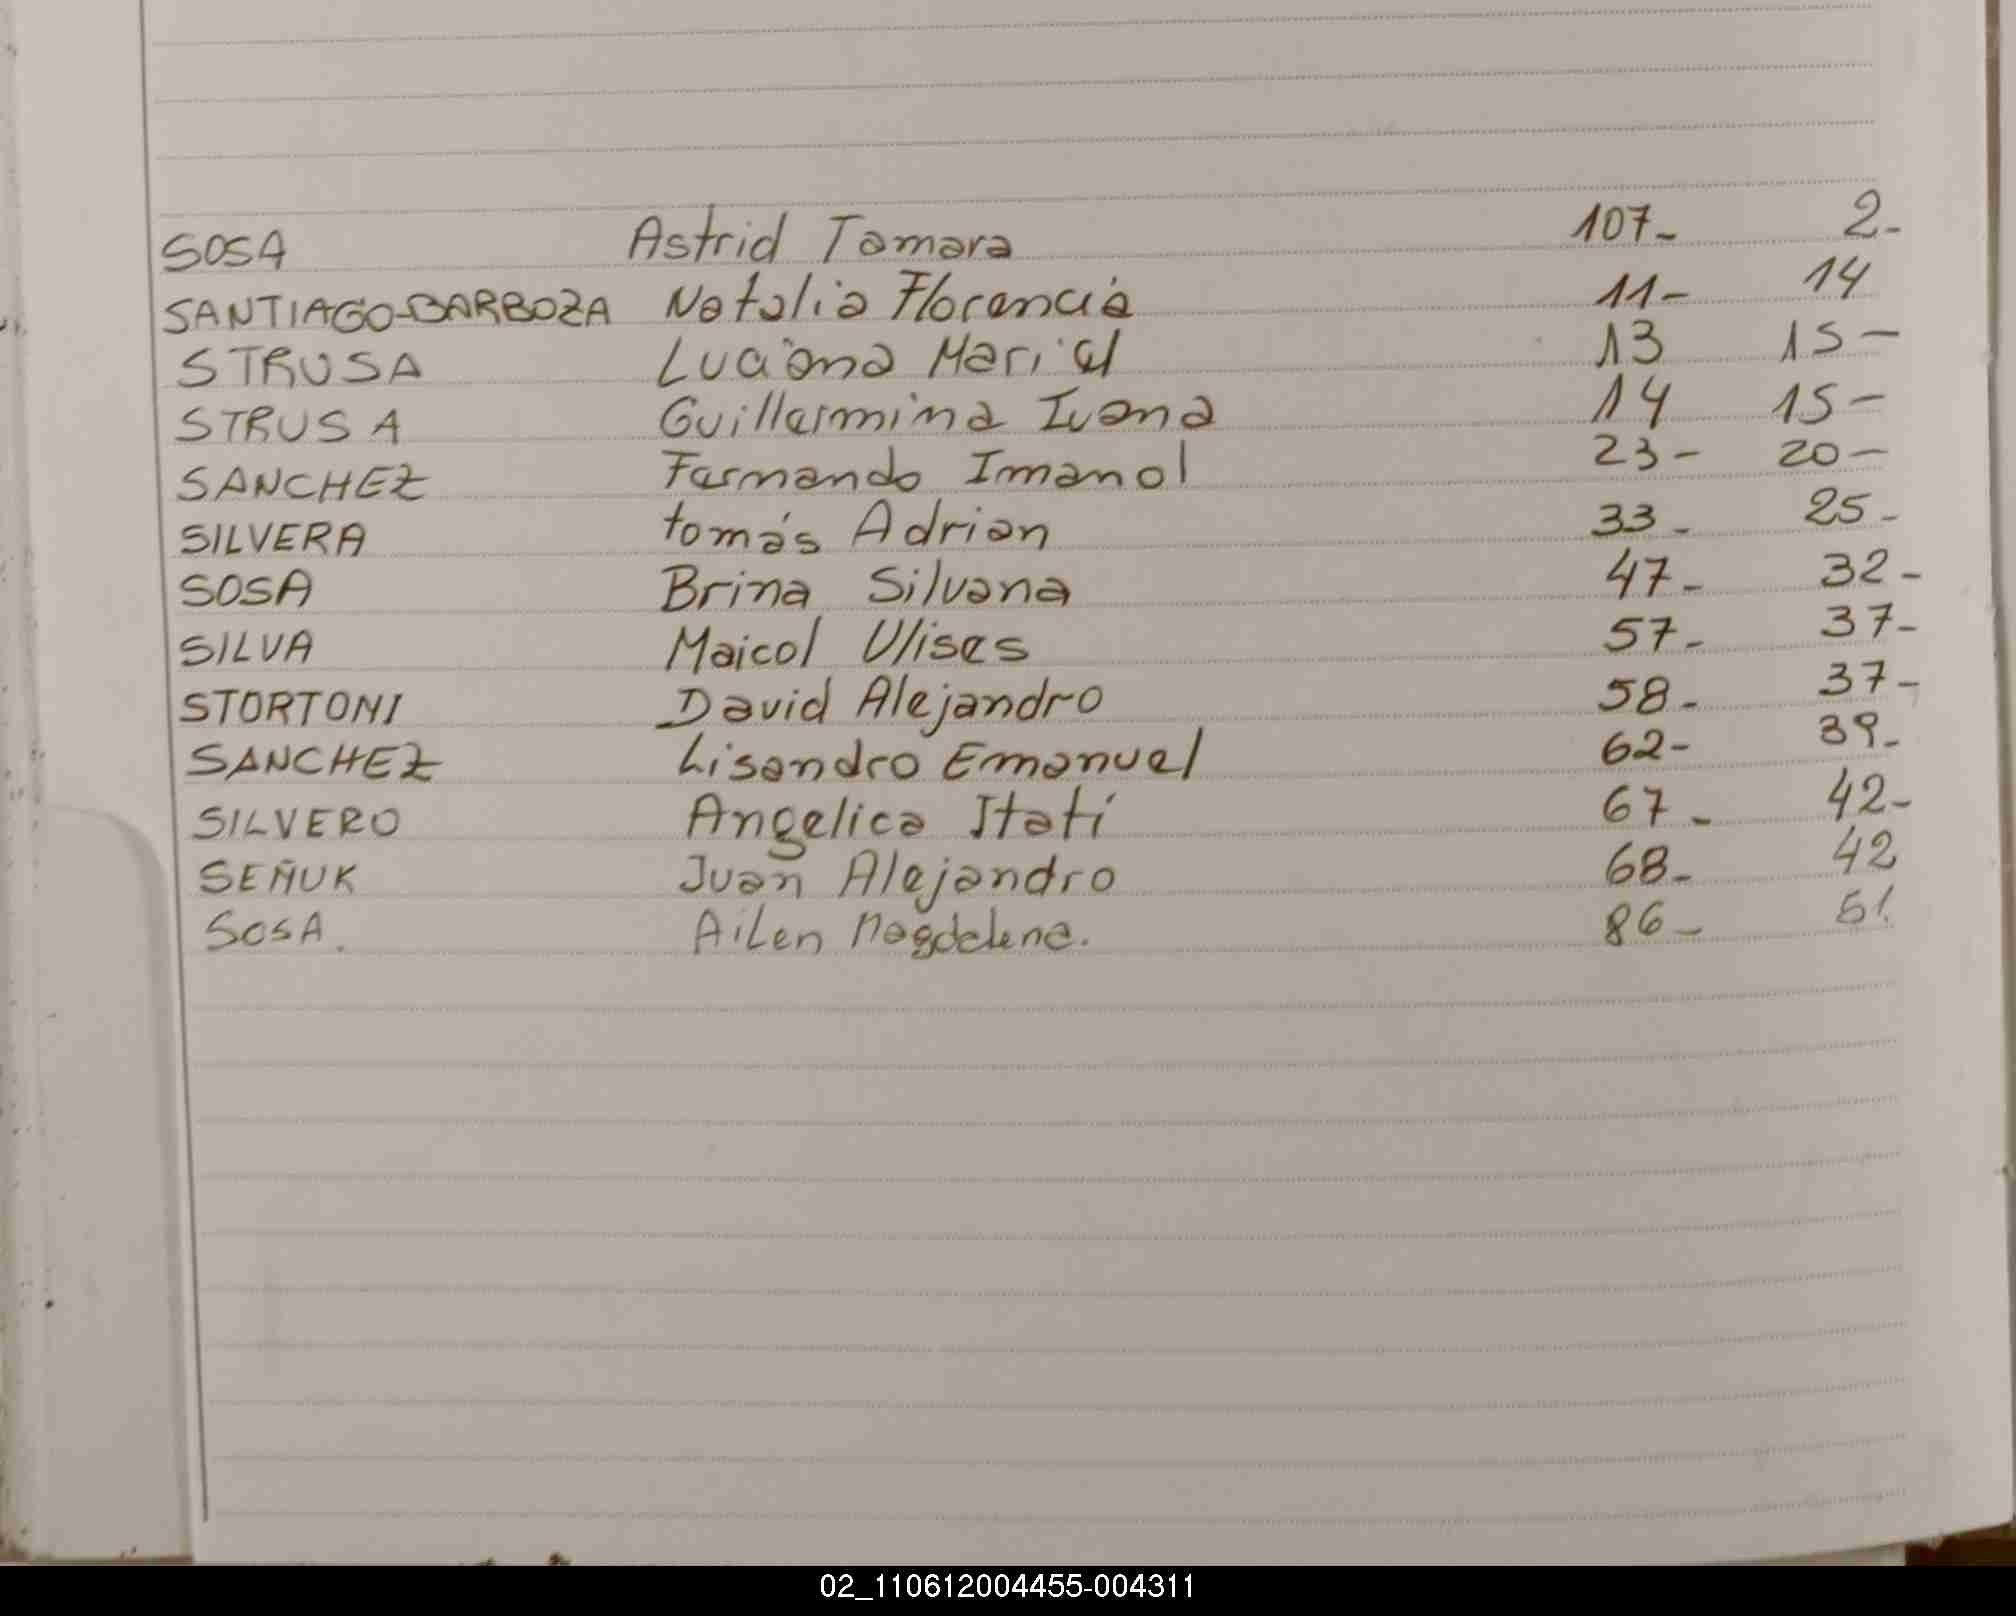 SOSA Astrid Tamara 107- 2-
SANTIAGO-BARBOZA Natalia Florencia 11- 14
STRUSA Luciana Mariel 13 15-
STRUSA Guillermina Ivana 14 15-
SANCHEZ Fernando Imanol 23- 20-
SILVERA tomás Adrian 33- 25-
SOSA Brina Silvana 47- 32-
SILVA Maicol Ulises 57- 37-
STORTONI David Alejandro 58- 37-
SANCHEZ Lisandro Emanuel 62- 39-
SILVERO Angelica Itatí 67- 42-
SEÑUK Juan Alejandro 68- 42
SOSA. Ailen Magdalena. 86- 51.
02_110612004455-004311